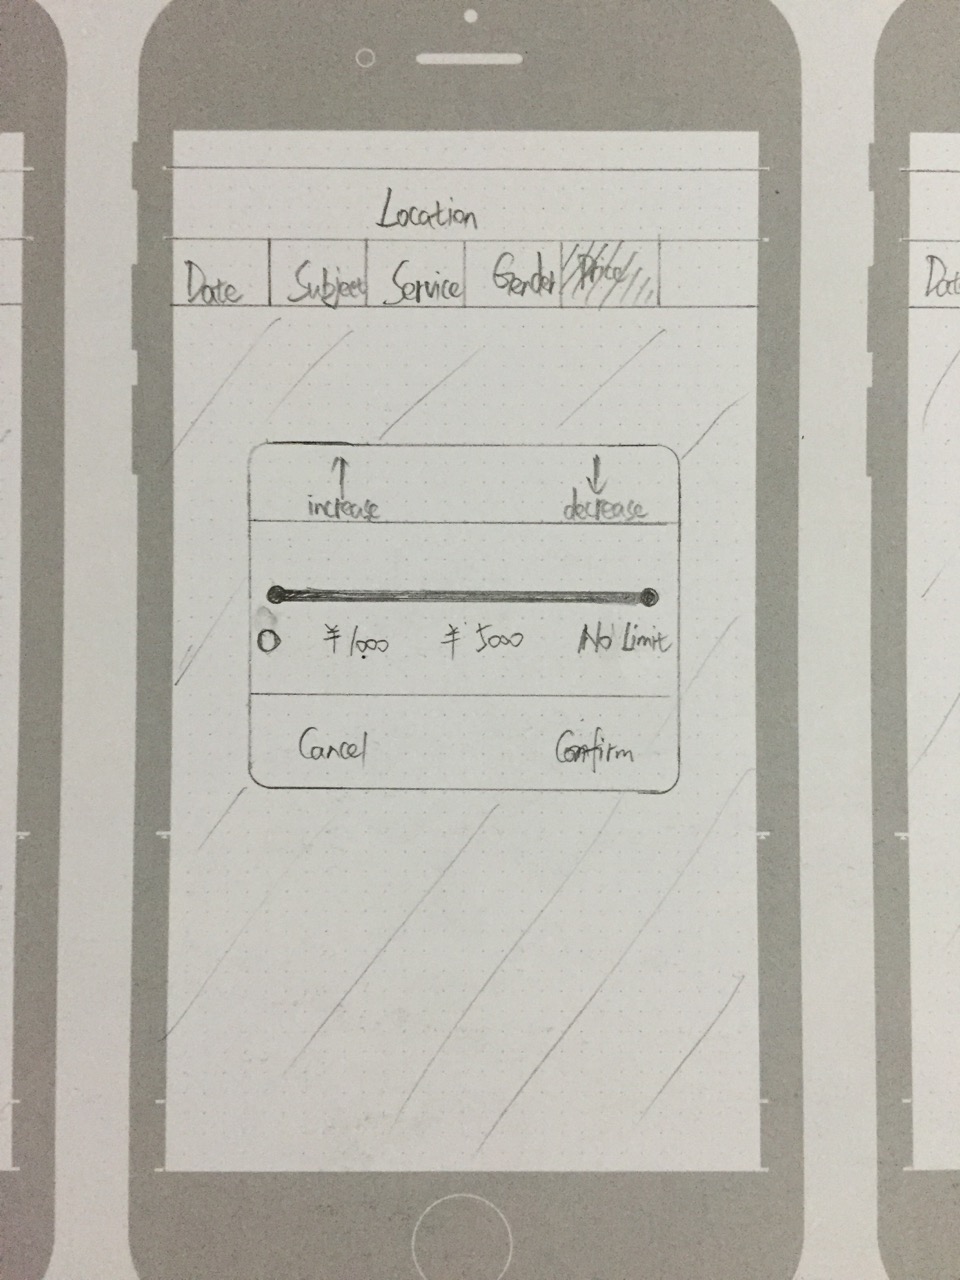 Location
Date Subject Service Gender Price
↑ ↓
increase decrease
0 ¥1000 ¥5000 No Limit
Cancel Confirm
Dat